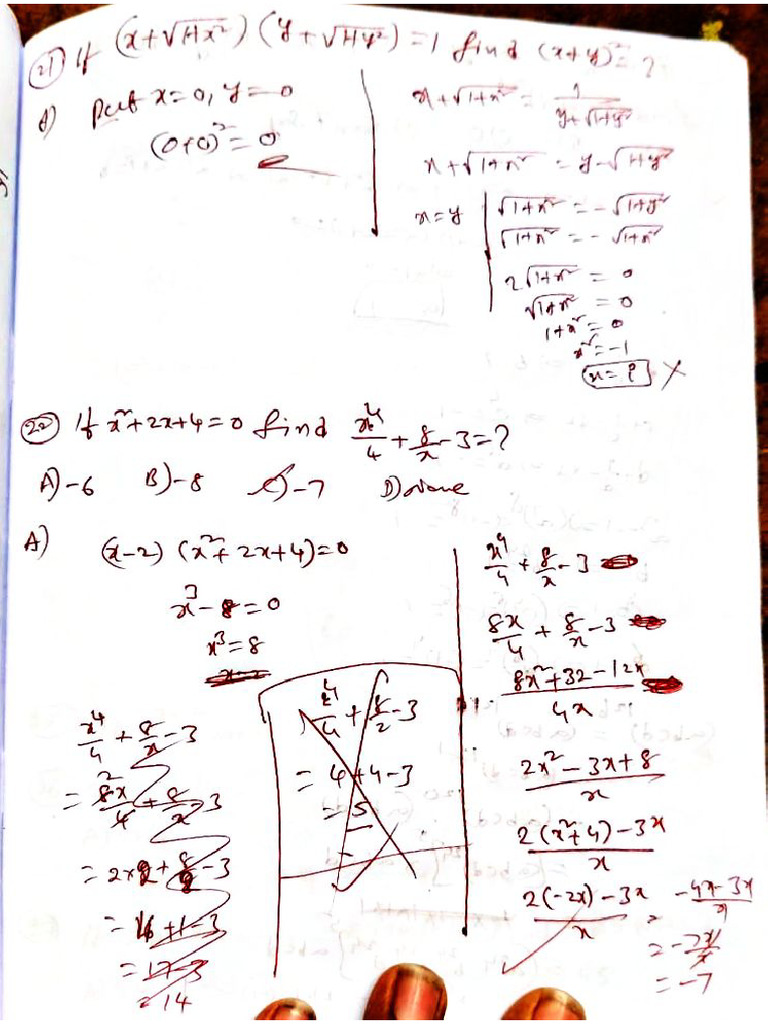 (21) If (x+√1+x²) (y+√1+y²) = 1 find (x+y)² = ?
A) Put x=0, y=0
(0+0)² = 0
x+√1+x² = 1/(y+√1+y²)
x+√1+x² = y-√1+y²
x=y
√1+x² = -√1+y²
√1+x² = -√1+x²
2√1+x² = 0
√1+x² = 0
1+x² = 0
x² = -1
x = i ×
(22) If x²+2x+4=0 find x⁴/4 + 8/x - 3 = ?
A) -6 B) -8 C) -7 D) None
A) (x-2) (x²+2x+4)=0
x³-8=0
x³=8
x⁴/4 + 8/x - 3
= 8x/4 + 8/x - 3
= 2×2 + 8/2 - 3
= 16+1-3
= 17-3
= 14
x⁴/4 + 8/2 - 3
= 4+4-3
= 5
x⁴/4 + 8/x - 3
8x/4 + 8/x - 3
(8x²+32-12x)/4x
(2x²-3x+8)/x
(2(x²+4)-3x)/x
(2(-2x)-3x)/x = (-4x-3x)/x
= -7x/x
= -7